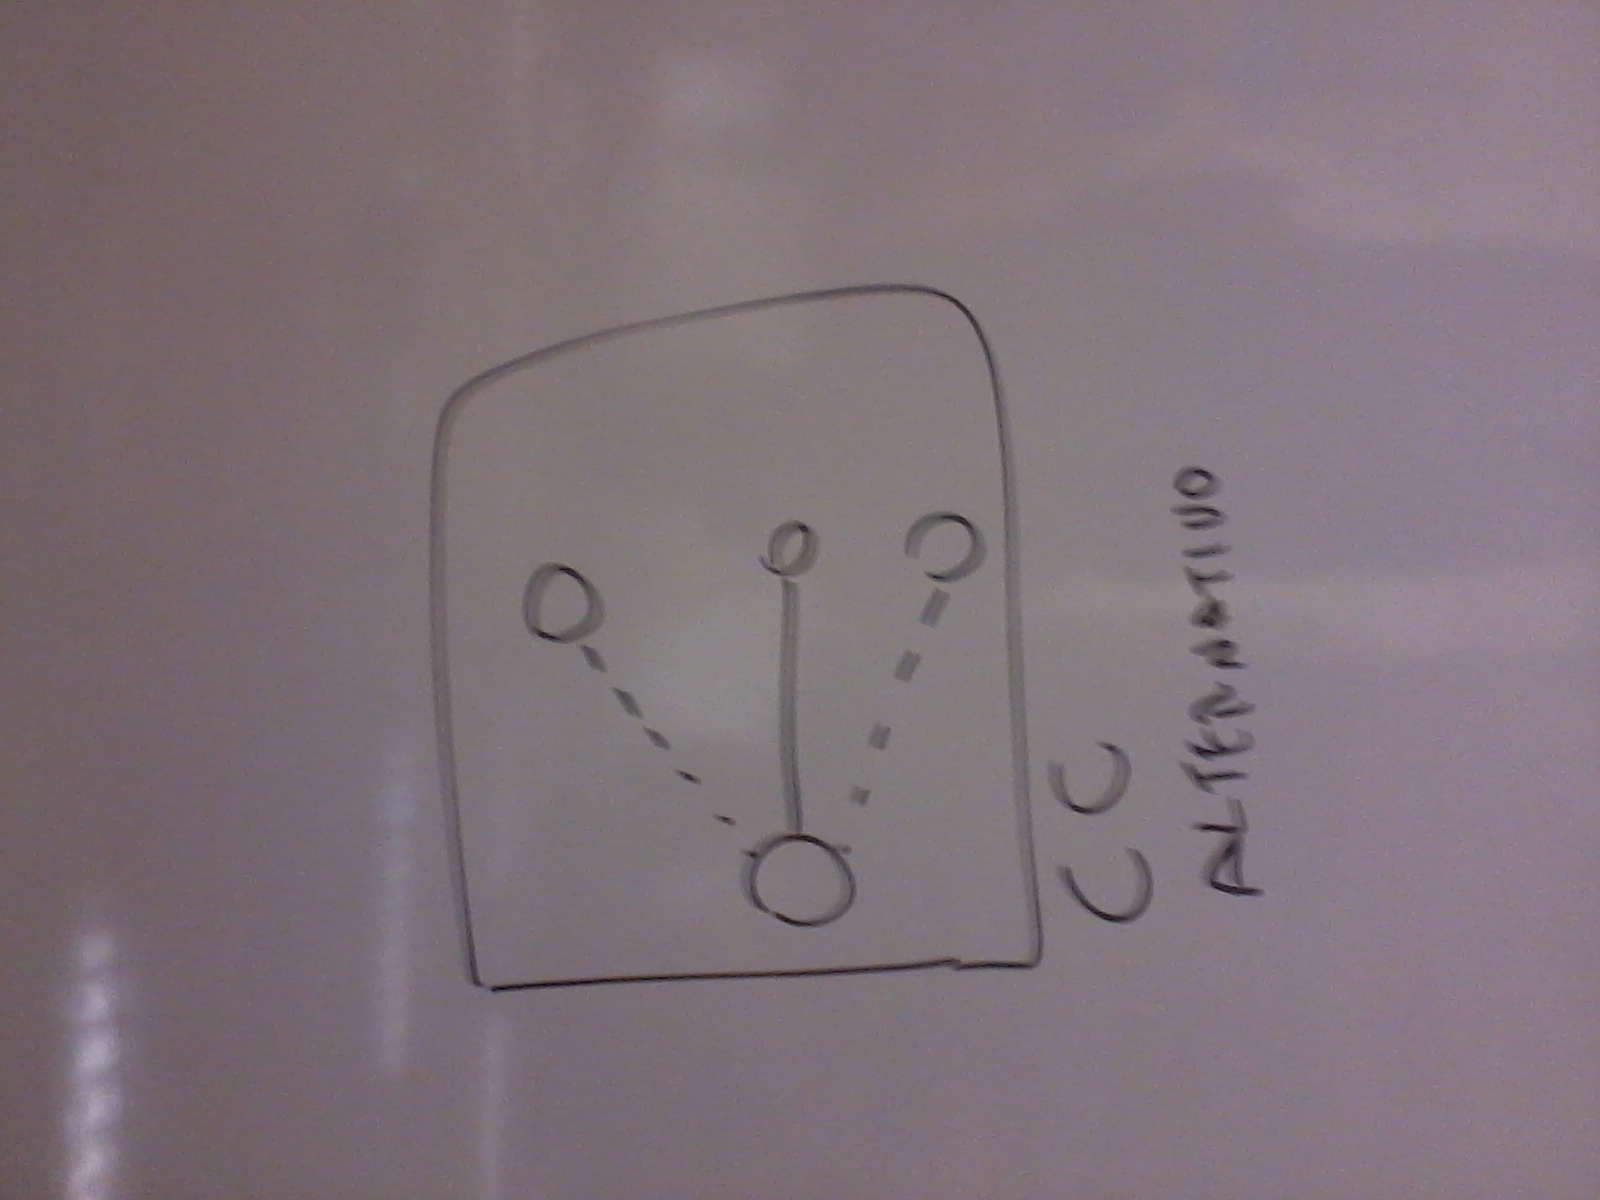 CC
ALTERNATIVO